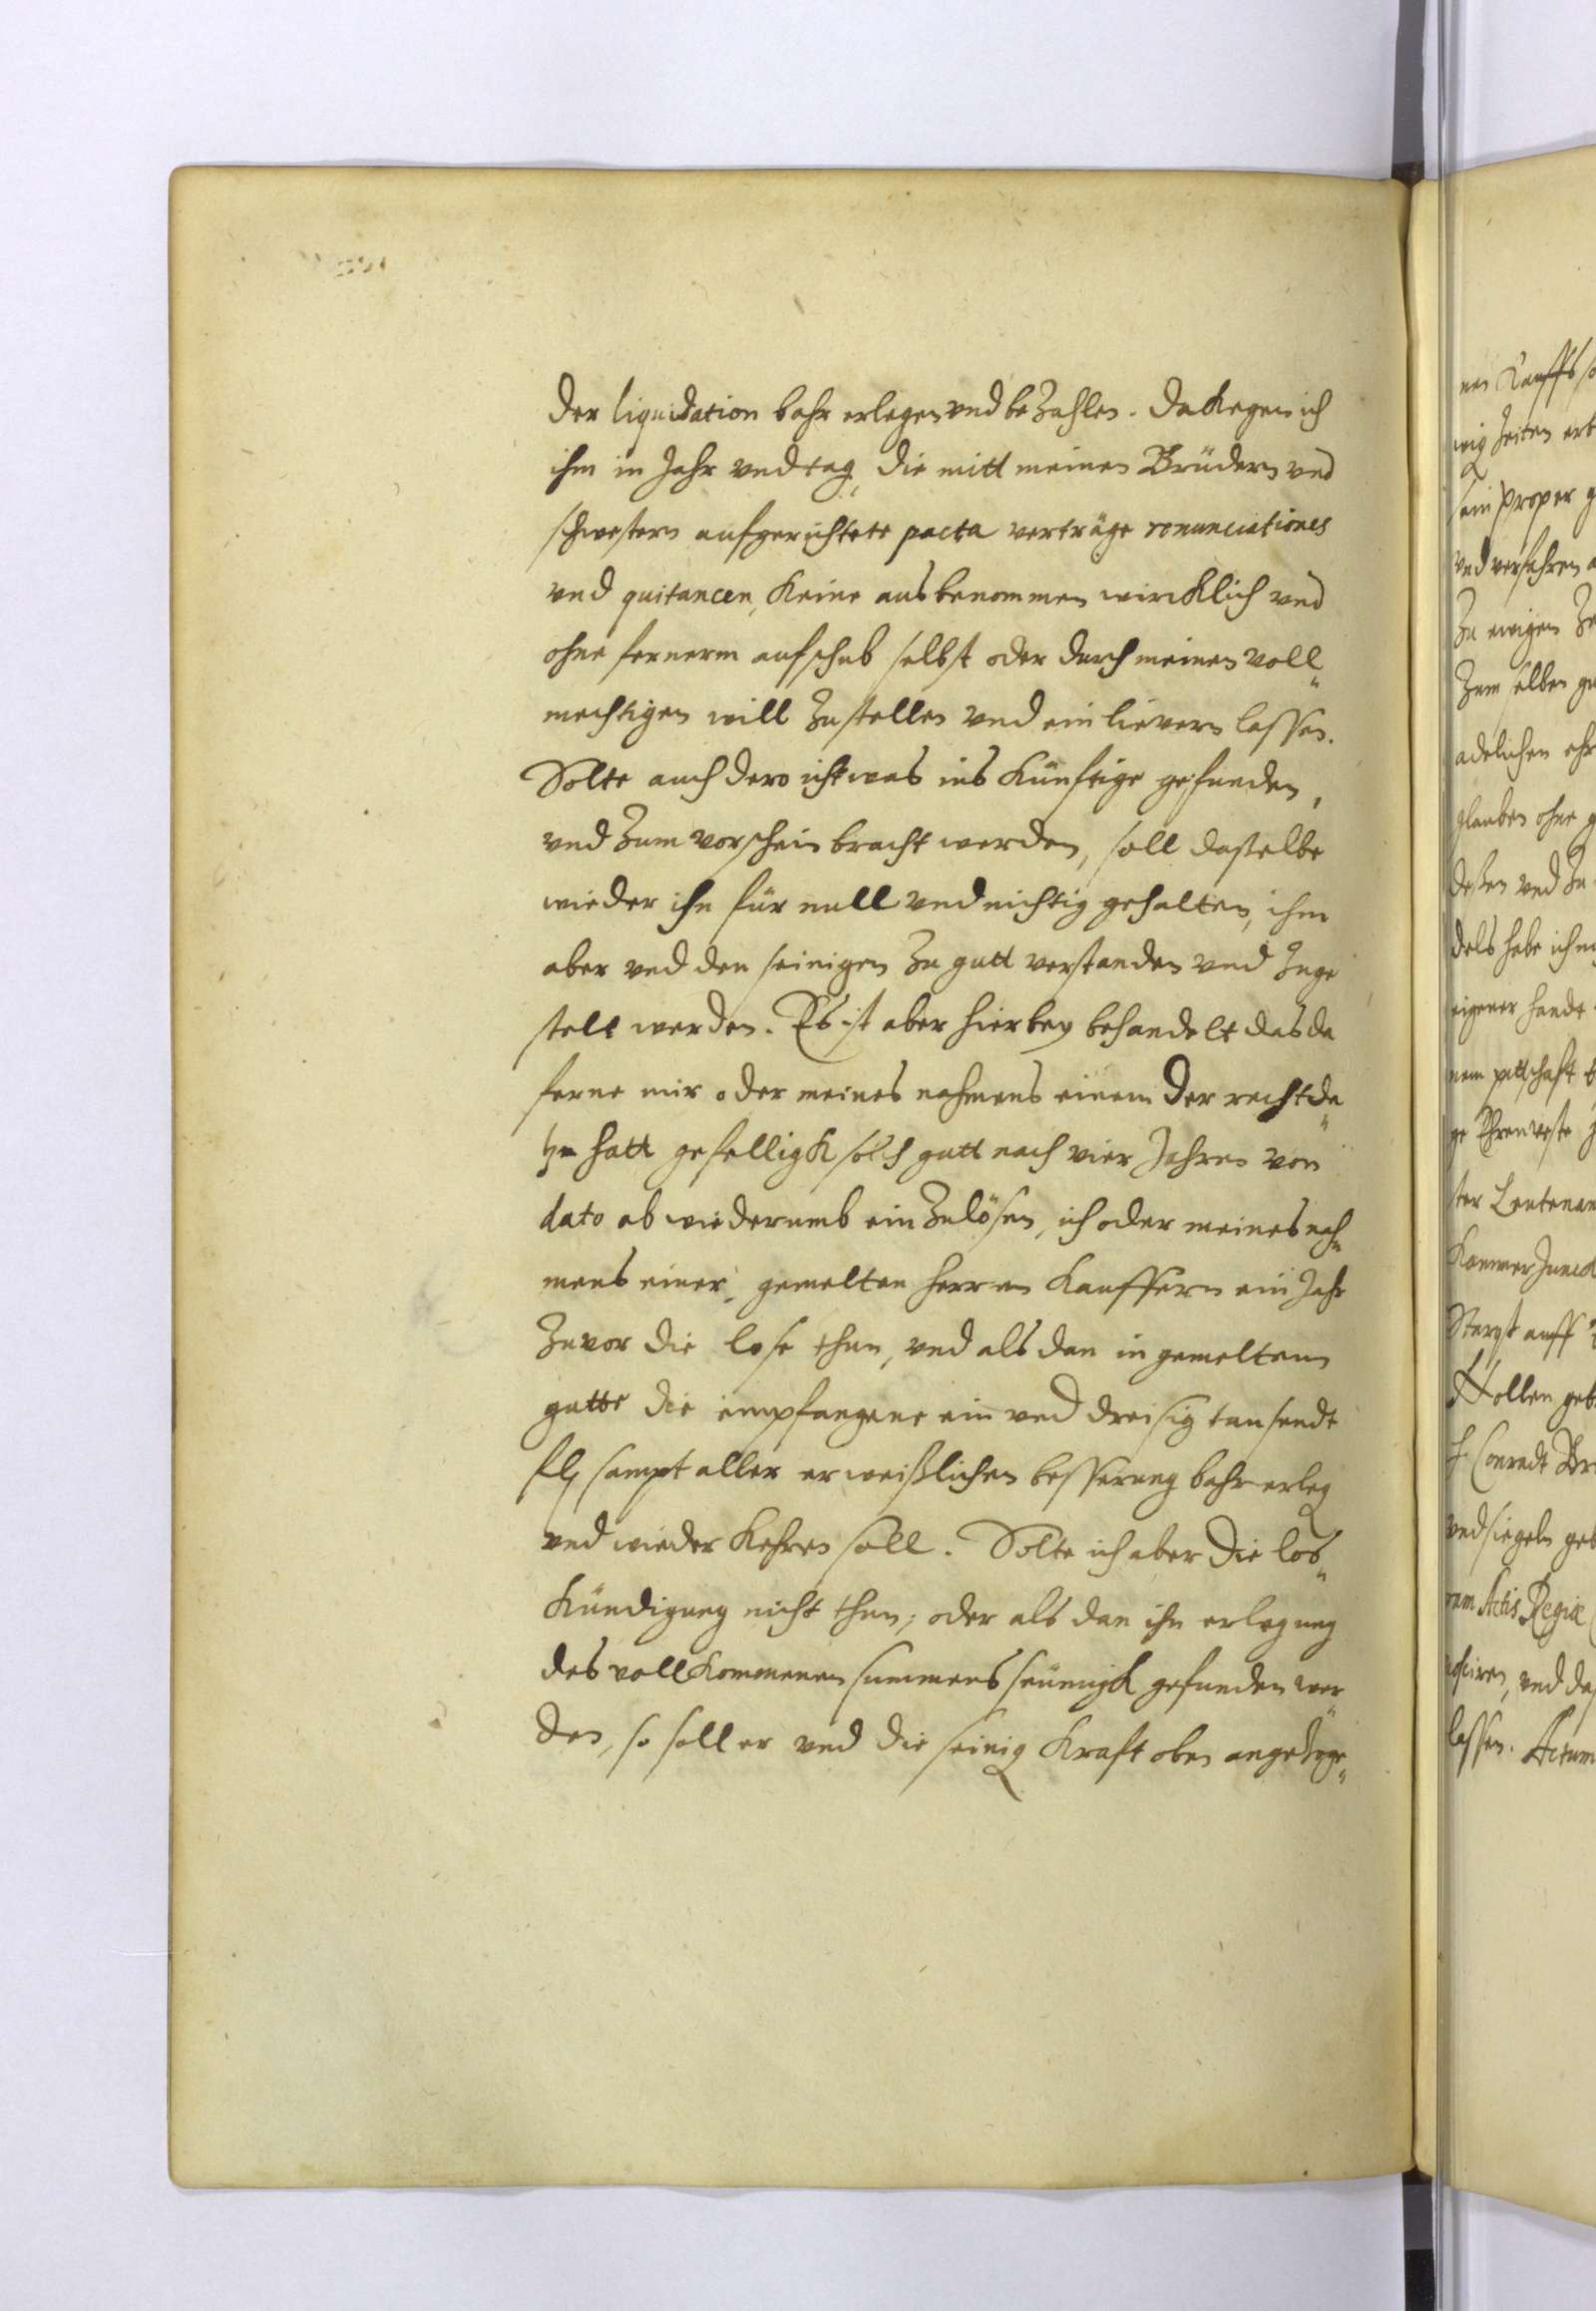 der liquidation bahr erlegen vnd beZahlen. Dakegen ich
ihm in Jahr vnd tag, die mitt meinen Brüdern vnd
schwestern aufgerichtete pacta verträge renunciationes
vnd quitancen, Keine ausbenommen wircklich vnd
ohne fernerm aufschub selbst oder durch meinen voll„
mechtigen will Zustellen vnd ein lievern lassen.
Solte auch dero ichtwas ins Künftige gefunden,
vnd Zum vorschein bracht werden, soll daßelbe
wieder ihn für null vnd nichtig gehalten, ihm
aber vnd den seinigen Zu gutt verstanden vnd Zuge
stelt werden. Es ist aber hierbey behandelt das da
ferne mir oder meines nahmens einem der recht da„
Zu hatt gefelligk solch gutt nach vier Jahren von
dato ab wiederumb ein Zulösen, ich oder meines nah„
mens einer, gemelten herren Kauffern ein Jahr
Zuvor die lose thun, vnd als dan in gemeltem
gutte die empfangene ein vnd dreisig tausendt
fl, sampt aller erweißlichen besserung bahr erleg
vnd wieder Kehren soll. Solte ich aber die los„
Kündigung nicht thun, oder als dan ihn erlegung
des voll Kommenen summens seümigk gefunden wer„
den, so soll er vnd die seinig Kraft oben angeZoge„
nen Kauffs
wig Zeiten
sein proper
vnd verfahren
Zu ewigen
Zum selben
adelichen
glauben ohne
deßen vnd Zu
dels habe ich
eigener handt
nem pettschaft
ge Ehrenveste
ter Leutenan
Kammer Junck
auff
Wollen
Conradt
vnd siegeln
rum Actis Regiæ
vnd
lassen. Actum